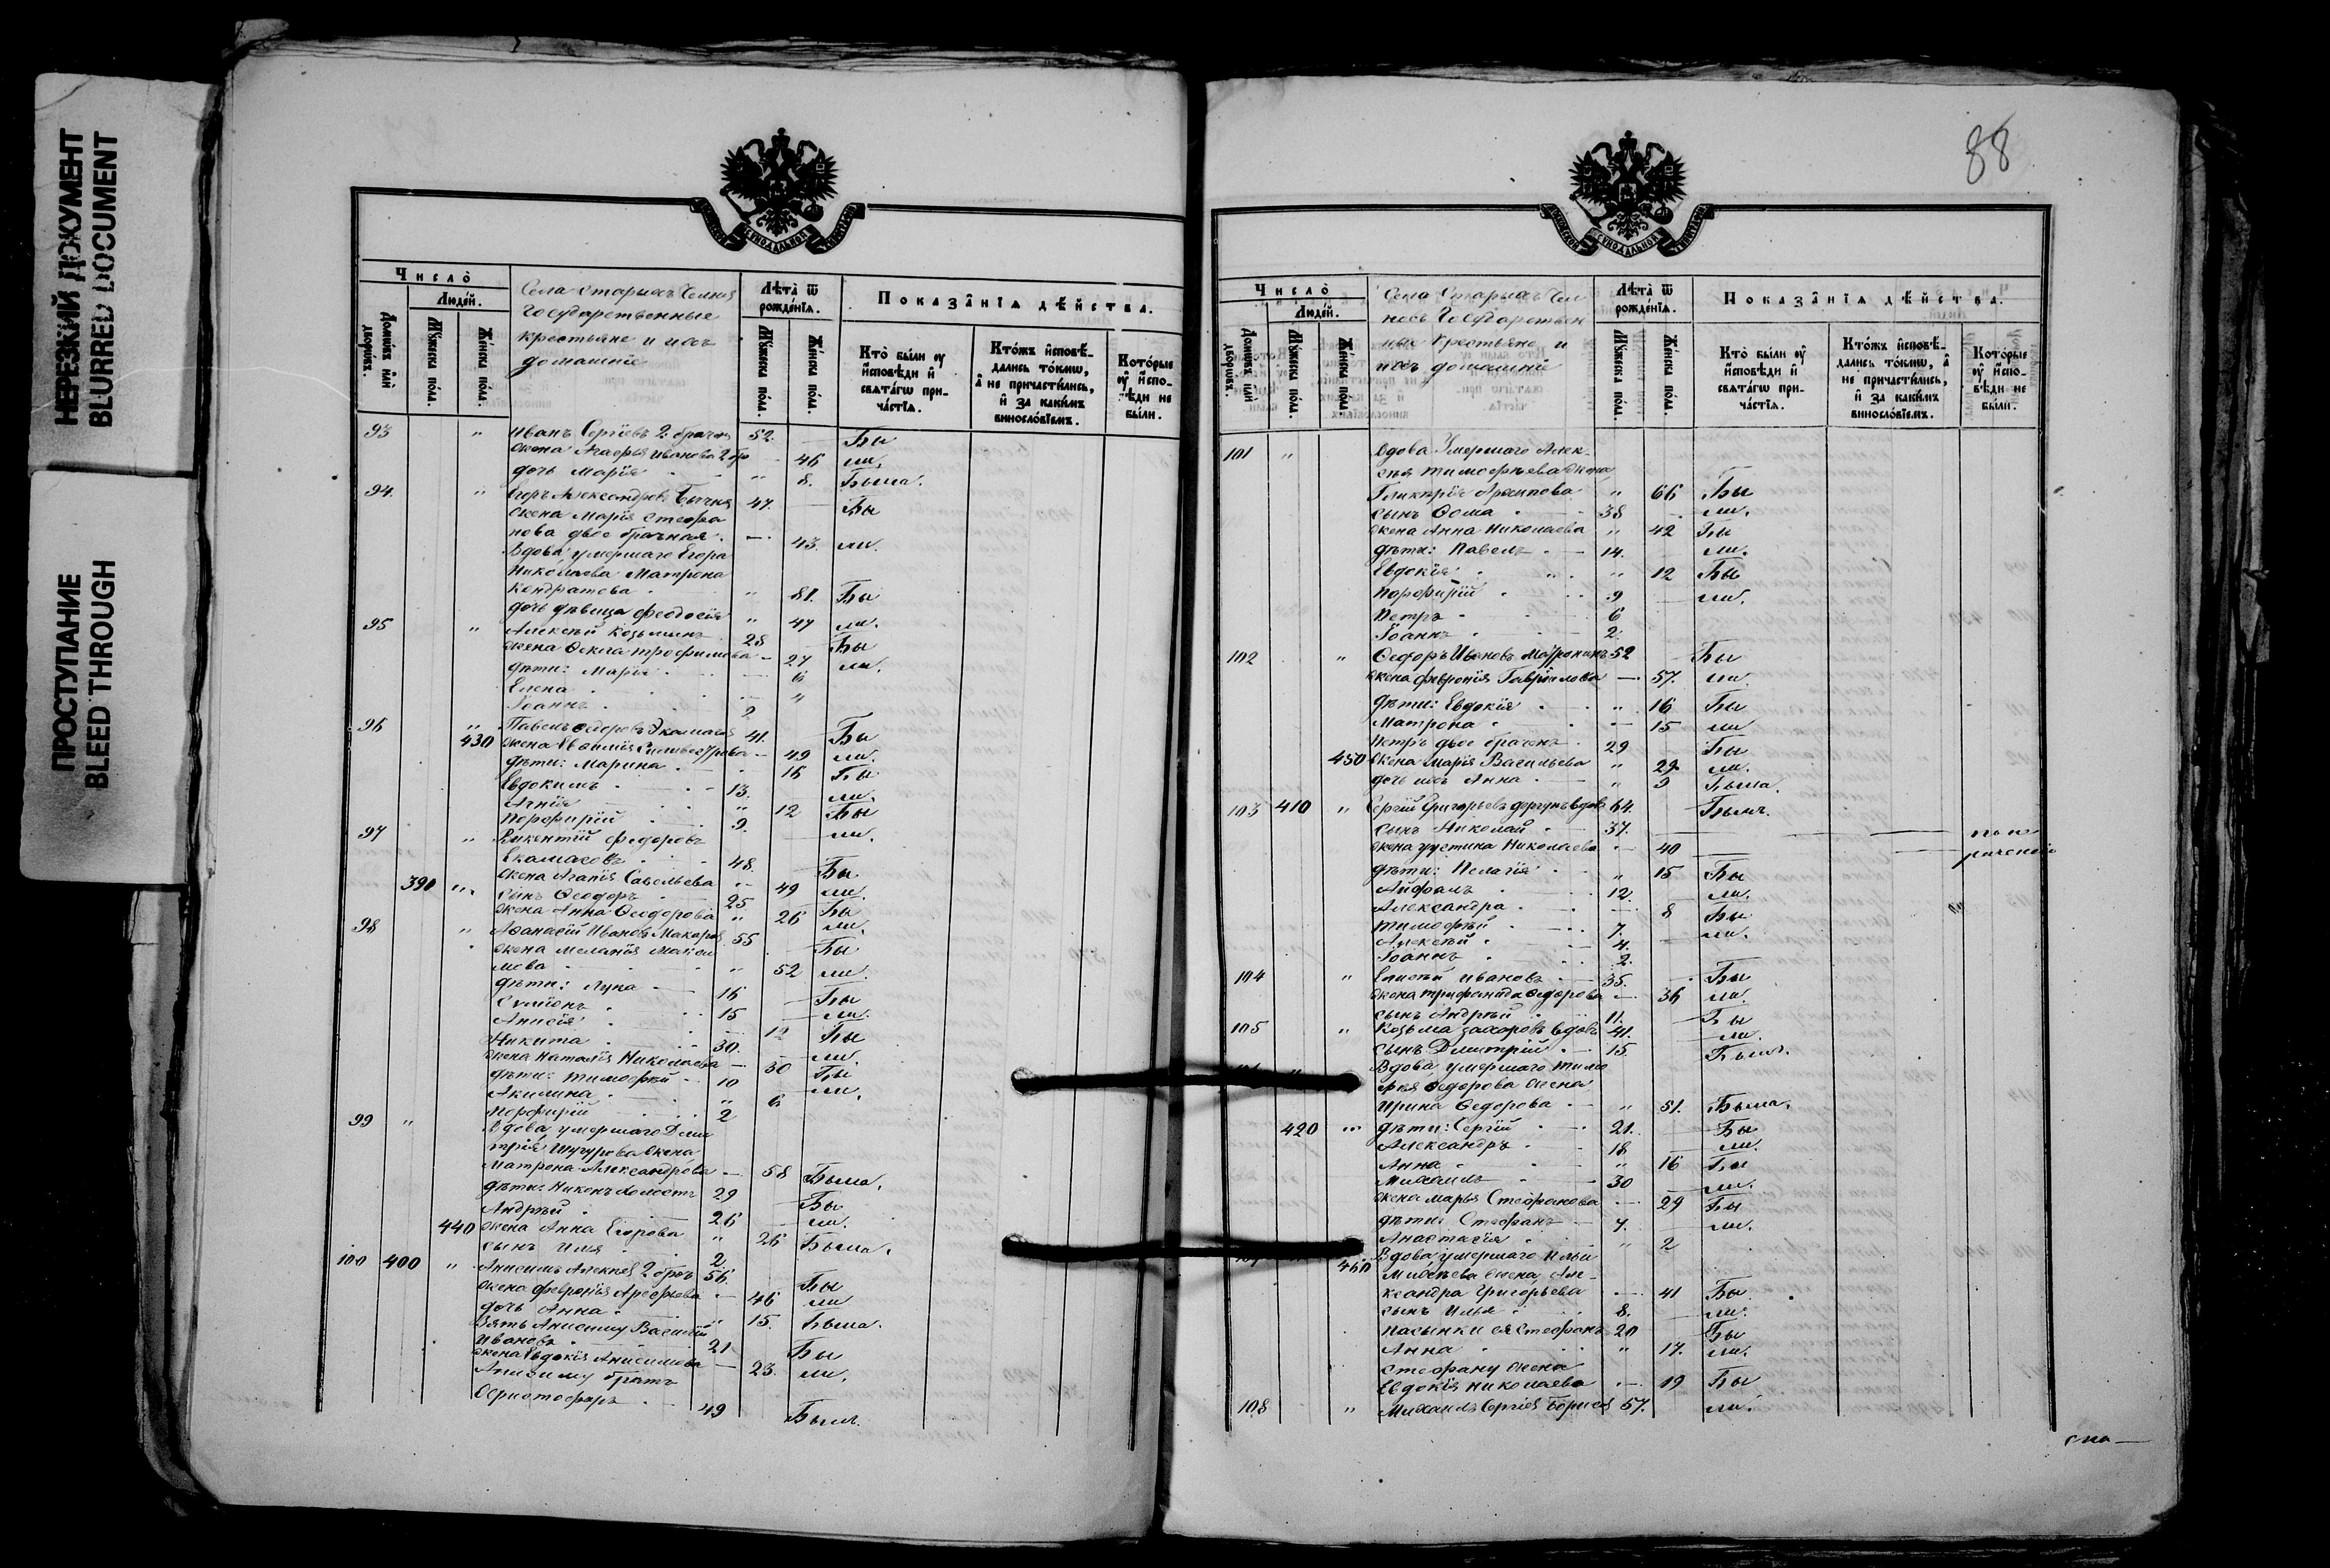 НЕРЕЗКИЙ ДОКУМЕНТ
BLURRED DOCUMENT
ПРОСТУПАНИЕ
BLEED THROUGH
Число̀
Людей.
Домѡвъ или дворѡвъ.
Мꙋжеска пола.
Женска пола.
Села Старыхъ
Государственные
крестьяне и ихъ
домашніе
Лѣта̀ ѿ рожденїѧ.
Мꙋжеска пола.
Женска пола.
Показанїѧ дѣйства.
Кто̀ были ᲂу҆ исповѣди и свѧтагѡ причастїѧ.
Ктожъ исповѣдались токмѡ, а не причастились, и за какимъ винословїемъ.
Которые ᲂу҆ исповѣди не были.
93 " Иванъ Сергіевъ 2 брачен 52. — Бы
жена Агафья Иванова 2 бр — 46 ли.
дочь Марія " 8. Была.
94. " Егоръ Александровъ 47. — Бы
жена Марія Стефа
нова двое брачная. — 43. ли.
Вдова умершаго Егора
Николаева Матрона
Кондратова " 81. Бы
дочь дѣвица Феодосія " 47 ли.
95 " Алексѣй Козьминъ 28 — Бы
жена Ѳекла Трофимова — 27 ли.
дѣти: Марія — 6
Елена 4
Іоаннъ 2
96 " Павелъ Ѳедоровъ 41. Бы
430 жена Евѳимія Сильвестрова — 49 ли.
дѣти: Марина 16 Бы
Евдокимъ 13. ли.
Агнія " 12 Бы
Порфирій 9. — ли.
97 " Викентій Федоровъ
Екамасовъ 48. — Бы
390 " жена Агапія Савельева " 49 ли.
сынъ Ѳеодоръ 25 — Бы
жена Анна Ѳеодорова " 26 ли.
98 " Аѳанасій Ивановъ Макаров 55 — Бы
жена Меланія Макси
мова " 52 ли.
дѣти: Лука 16 — Бы
Симеонъ 15 — ли.
Анисія — 12 Бы
Никита 30. — ли.
жена Наталія Николаева — 30 Бы
дѣти: Тимофей 10 — ли.
Акилина " 6
Порфирій 2
99 " Вдова умершаго Дми
трія Шугурова жена
Матрона Александрова — 58 Была.
дѣти: Никонъ холостъ 29 — Бы
Андрѣй 26 — ли.
440 жена Анна Егорова " 26 Была.
сынъ Илья 2
100 400 " Анисимъ Алексѣев 2 брач 56. Бы
жена Февронія Арефьева — 46 ли
дочь Анна " 15. Была.
Зять Анисиму Василій
Ивановъ 21 Бы
жена Евдокія Анисимова — 23. ли.
Анисиму братъ
Христофоръ 49 Былъ.
88
Число̀
Людей.
Домѡвъ или дворѡвъ.
Мꙋжеска пола.
Женска пола.
Села Старыхъ
Государствен
ные крестьяне и
ихъ домашніе
Лѣта̀ ѿ рожденїѧ.
Мꙋжеска пола.
Женска пола.
Показанїѧ дѣйства.
Кто̀ были ᲂу҆ исповѣди и свѧтагѡ причастїѧ.
Ктожъ исповѣдались токмѡ, а не причастились, и за какимъ винословїемъ.
Которые ᲂу҆ исповѣди не были.
101 " Вдова Умершаго Алек-
сѣя Тимофѣева жена
Гликерія Архипова " 66 Бы
сынъ Ѳома 38 — ли.
жена Анна Николаева " 42 Бы
дѣти: Павелъ 14. — ли.
Евдокія " 12 Бы
Порфирій 9 — ли.
Петръ 6
Іоаннъ 2
102 " Ѳедоръ Ивановъ 52 — Бы
жена Февронія Гавріилова — 57. ли.
дѣти: Евдокія " 16 Бы
Матрона — 15 ли
Петръ двое браченъ 29 — Бы
450 жена Марія Васильева " 29 ли.
дочь ихъ Анна " 9 Была.
103 410 " Сергій Григорьевъ вдов 64. — Былъ.
сынъ Николай 37.
жена Устина Николаева — 40
по не
рачению
дѣти: Пелагія " 15 Бы
Айфалъ 12. — ли.
Александра — 8 Бы
Тимофѣй 7. — ли.
Алексѣй 4.
Іоаннъ 2.
104 " Елисѣй Ивановъ 35. — Бы
жена Трифенида Ѳедорова — 36 ли.
сынъ Андрѣй 11. — Бы
105 " Козьма Захаровъ вдовъ 41. — ли.
сынъ Димитрій 15. Былъ.
Вдова умершаго Тимо
фея Ѳедорова жена
Ирина Ѳедорова " 51. Была.
420 " дѣти: Сергій 21. — Бы
Александръ 18 — ли.
Анна " 16 Бы
Михаилъ 30 — ли.
жена Марья Стефанова — 29 Бы
дѣти: Стефанъ 4. — ли.
Анастасія " 2
460 Вдова умершаго Ильи
Михѣева жена Але-
ксандра Григорьева — 41 Бы
сынъ Илья 8. — ли.
пасынки ея Стефанъ 20 Бы
Анна " 17. ли.
Стефану жена
Евдокія Николаева — 19 Бы
108 " Михаилъ Сергіев Борисов 57. ли.